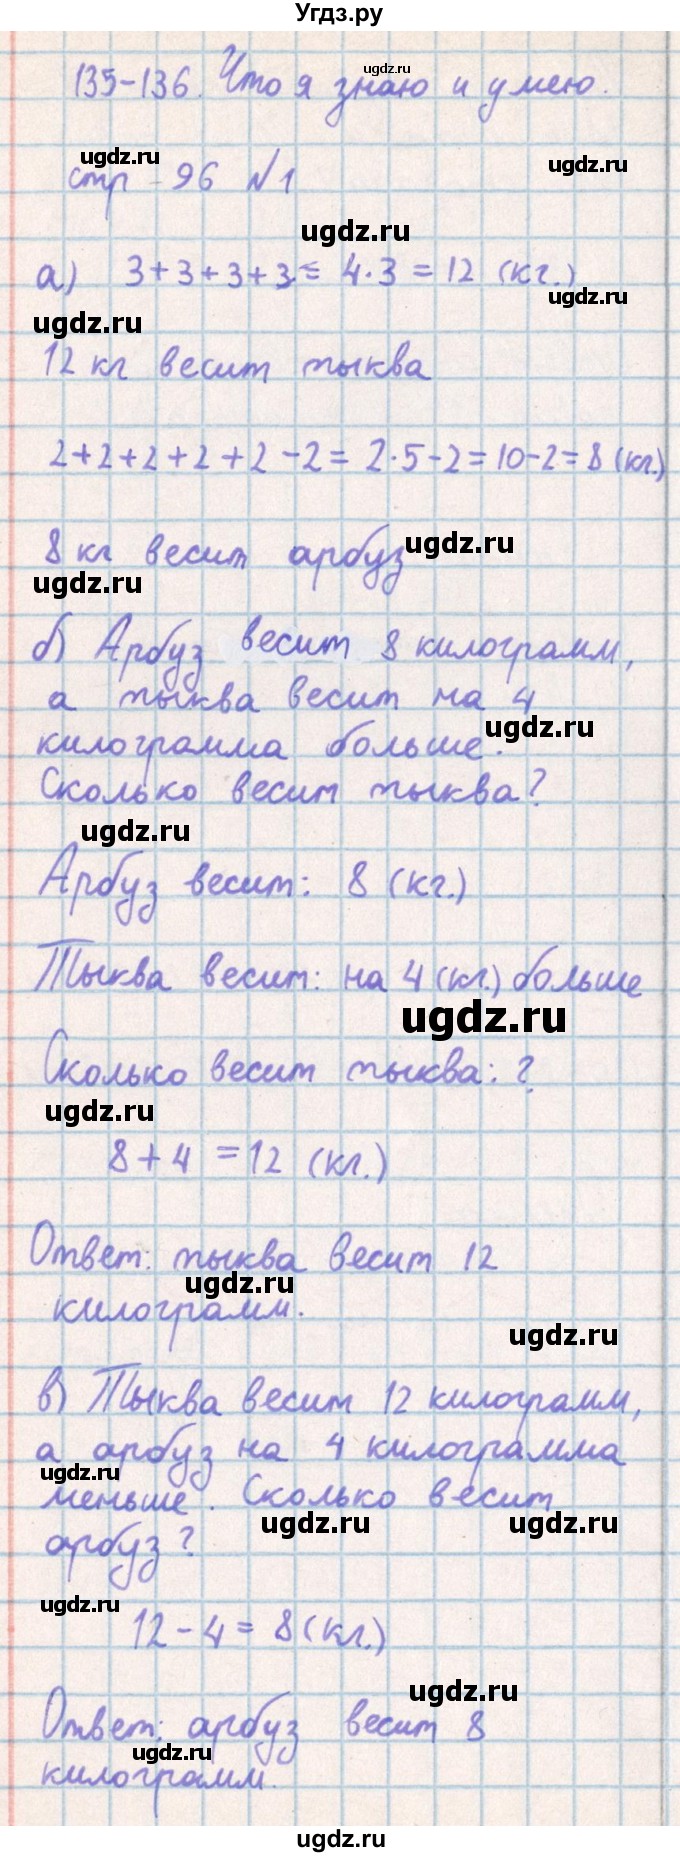 Угдз.ру
135-136. Что я знаю и умею.
ugdz.ru
ugdz.ru
ugdz.ru
стр - 96 №1
ugdz.ru
а) 3+3+3+3 = 4·3 = 12 (кг.)
ugdz.ru
ugdz.ru
12 кг весит тыква
2+2+2+2+2-2 = 2·5-2 = 10-2 = 8 (кг.)
8 кг весит арбуз
ugdz.ru
ugdz.ru
б) Арбуз весит 8 килограмм,
а тыква весит на 4
ugdz.ru
килограмма больше.
Сколько весит тыква?
ugdz.ru
Арбуз весит: 8 (кг.)
Тыква весит: на 4 (кг.) больше
ugdz.ru
Сколько весит тыква: ?
ugdz.ru
8+4 = 12 (кг.)
Ответ: тыква весит 12
ugdz.ru
килограмм.
ugdz.ru
в) Тыква весит 12 килограмм,
а арбуз на 4 килограмма
ugdz.ru
меньше. Сколько весит
ugdz.ru
ugdz.ru
арбуз?
ugdz.ru
12-4 = 8 (кг.)
ugdz.ru
Ответ: арбуз весит 8
ugdz.ru
килограмм.
ugdz.ru